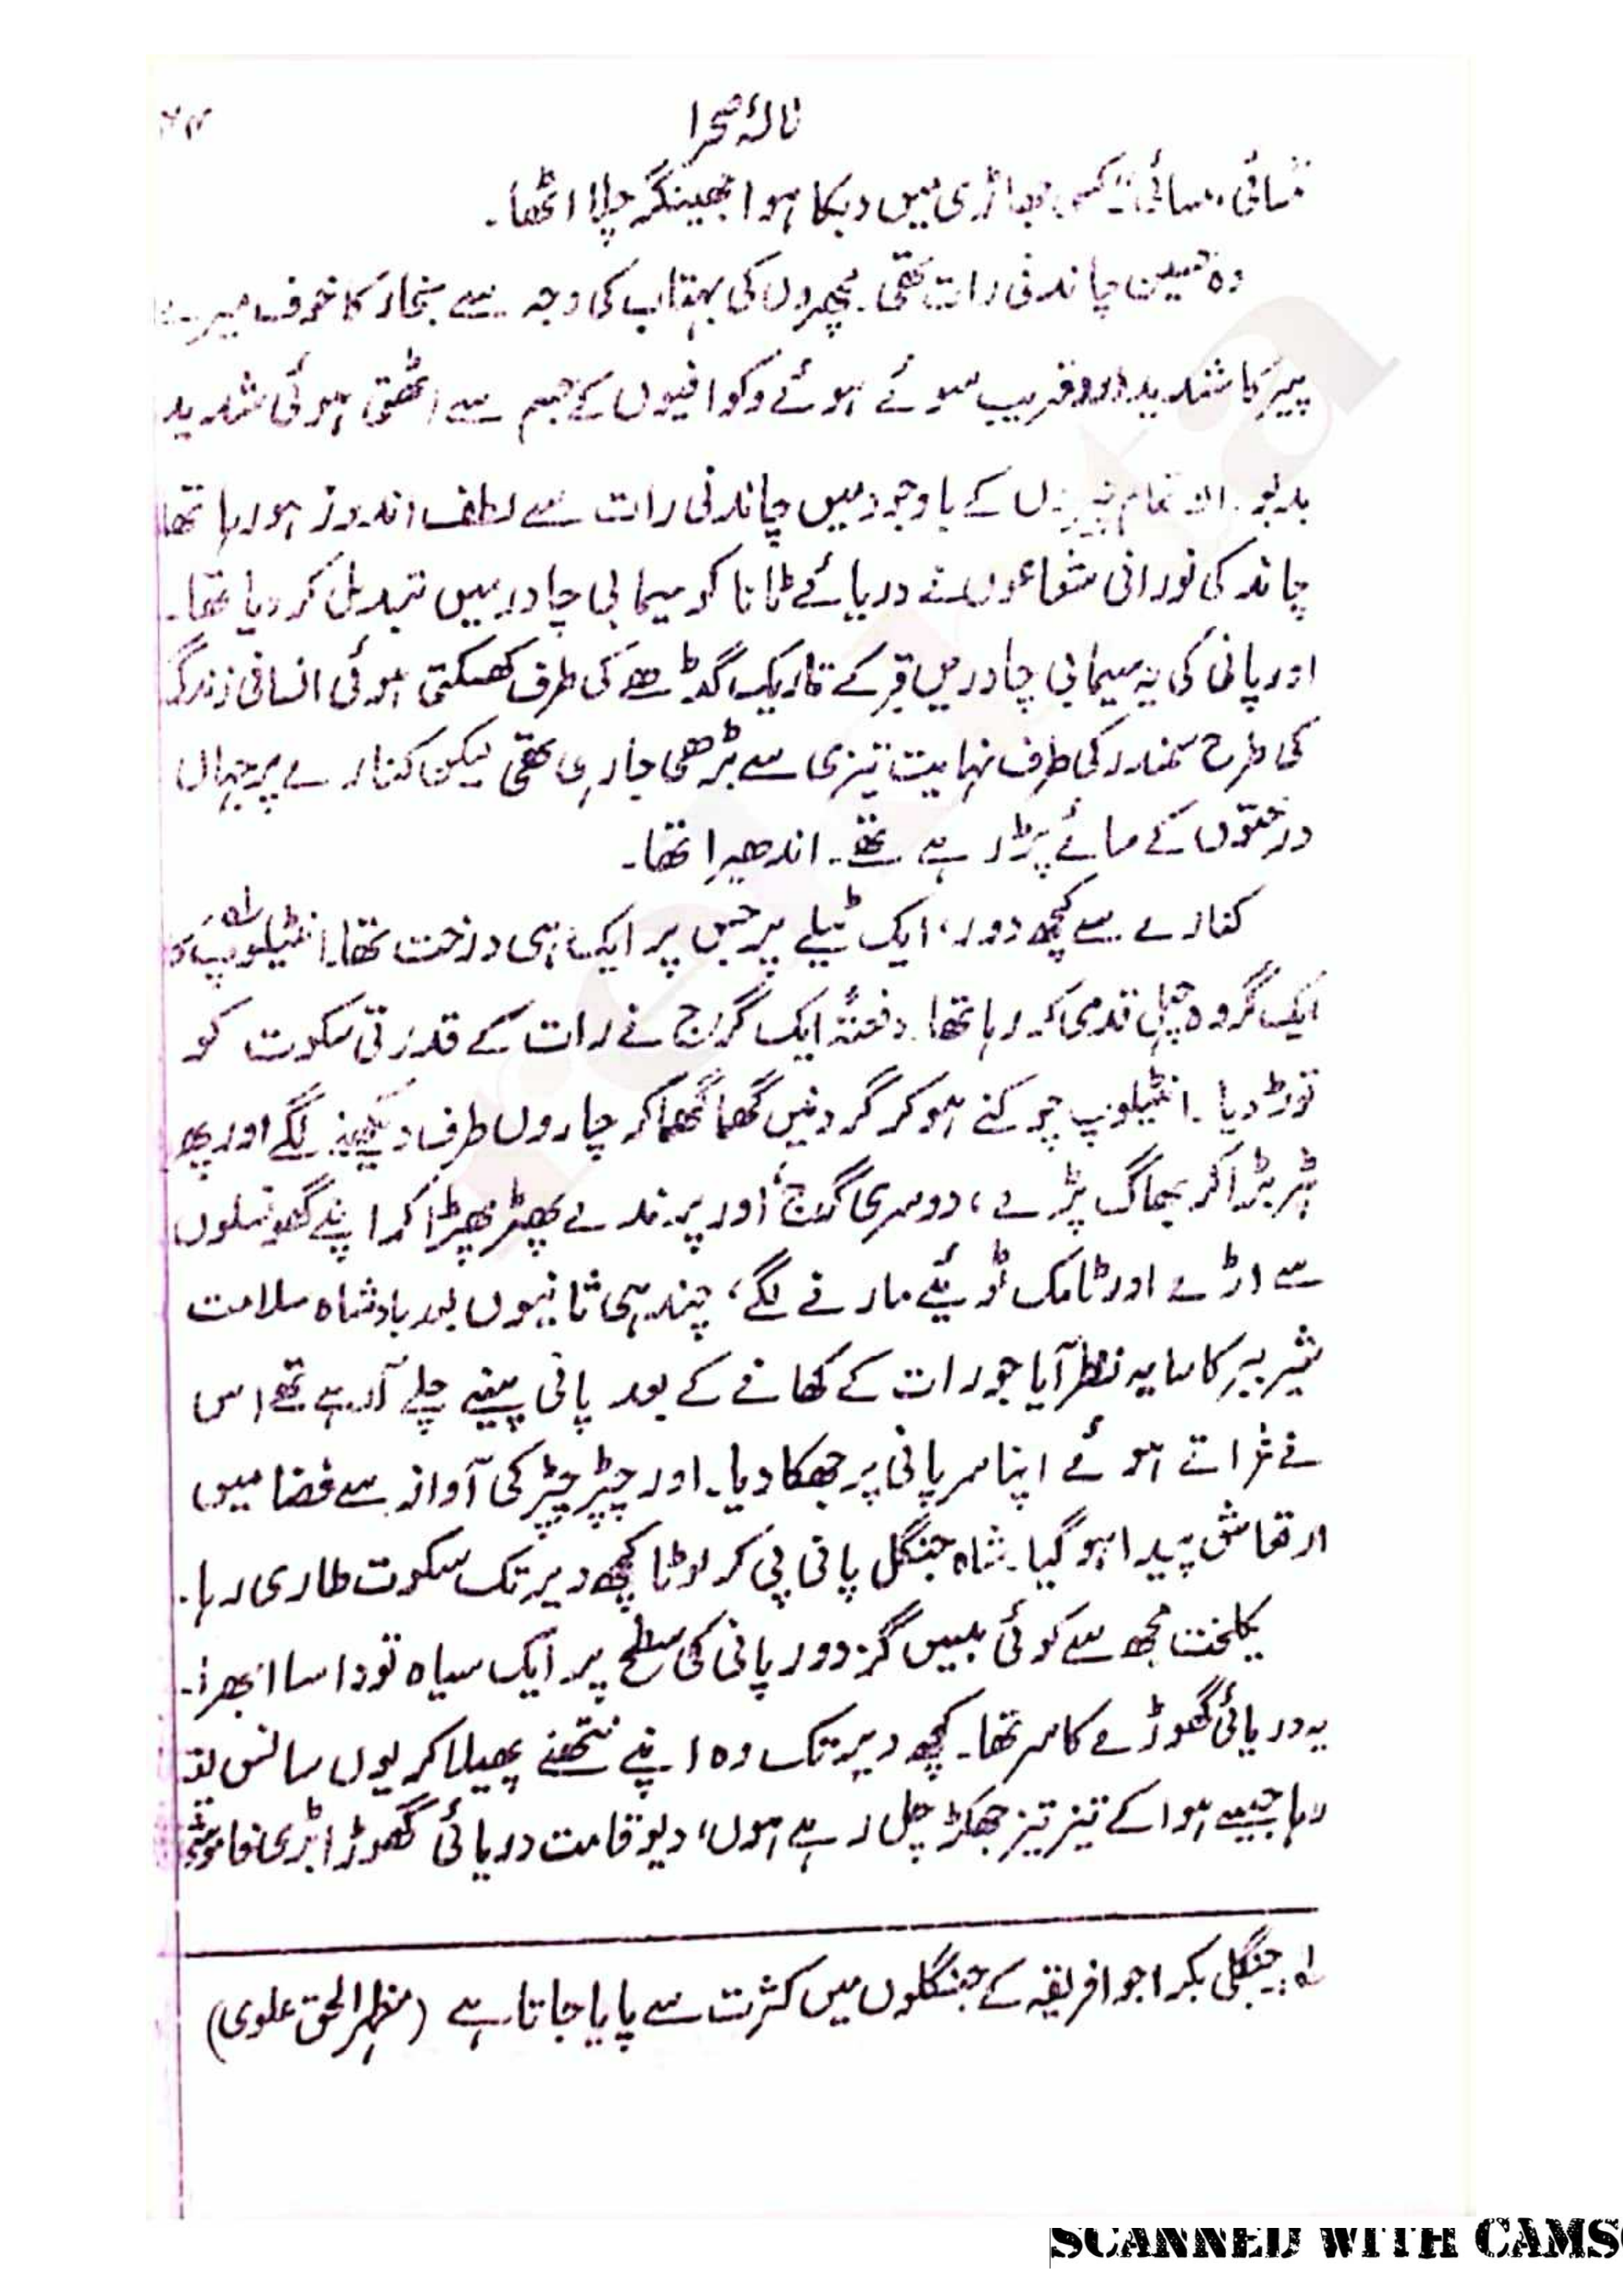 نالۂ صحرا
سائی، سائی کسی جھاڑی میں دبکا ہوا جھینگر چلا اٹھا۔
وہ حسین چاندنی رات تھی۔ مچھروں کی بہتات کی وجہ سے بخار کا خوف میرے
پیر کا شدید درد قریب سوئے ہوئے وکوافیوں کے جسم سے اٹھتی ہوئی شدید
بدبو۔ ان تمام چیزوں کے باوجود میں چاندنی رات سے لطف اندوز ہو رہا تھا
چاند کی نورانی شعاعوں نے دریائے ٹانا کو سیمابی چادر میں تبدیل کر دیا تھا۔
اور پانی کی یہ سیمابی چادر میں قبر کے تاریک گڈھے کی طرف کھسکتی ہوئی انسانی زندگی
کی طرح سمندر کی طرف نہایت تیزی سے بڑھی جا رہی تھی لیکن کنارے پر جہاں
درختوں کے سائے پڑ رہے تھے۔ اندھیرا تھا۔
کنارے سے کچھ دور، ایک ٹیلے پر جس پر ایک ہی درخت تھا۔ انٹیلوپ لہ کا
ایک گروہ چہل قدمی کر رہا تھا۔ دفعتہً ایک گرج نے رات کے قدرتی سکوت کو
توڑ دیا۔ انٹیلوپ چوکنے ہو کر گردنیں گھما گھما کر چاروں طرف دیکھنے لگے اور پھر
ہڑبڑا کر بھاگ پڑے، دوسری گرج اور پرندے پھڑپھڑا کر اپنے گھونسلوں
سے اڑے اور ٹامک ٹوئیے مارنے لگے، چند ہی ثانیوں بعد بادشاہ سلامت
شیر ببر کا سایہ نظر آیا جو رات کے کھانے کے بعد پانی پینے چلے آ رہے تھے اس
نے غراتے ہوئے اپنا سر پانی پر جھکا دیا۔ اور چپڑ چپڑ کی آواز سے فضا میں
ارتعاش پیدا ہو گیا۔ شاہ جنگل پانی پی کر لوٹا کچھ دیر تک سکوت طاری رہا۔
یکلخت مجھ سے کوئی بیس گز دور پانی کی سطح پر ایک سیاہ تودا سا ابھرا۔
یہ دریائی گھوڑے کا سر تھا۔ کچھ دیر تک وہ اپنے نتھنے پھیلا کر یوں سانس لیتا
رہا جیسے ہوا کے تیز تیز جھکڑ چل رہے ہوں، دیو قامت دریائی گھوڑا بڑی خاموشی
لہ: جنگلی بکرا جو افریقہ کے جنگلوں میں کثرت سے پایا جاتا ہے (مظہر الحق علوی)
SCANNED WITH CAMS